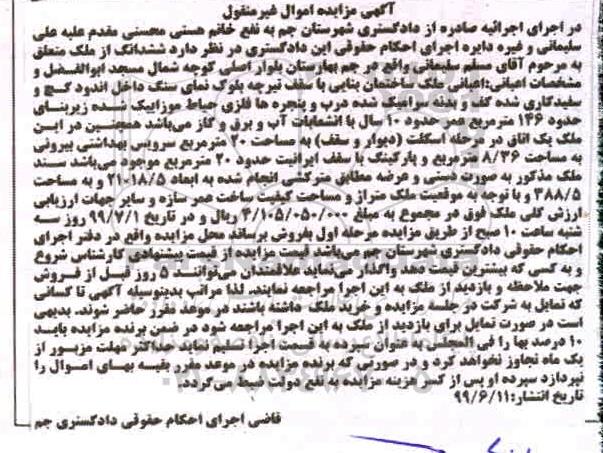 آگهی مزایده اموال غیرمنقول
در اجرای اجرائیه صادره از دادگستری شهرستان جم به نفع خانم هستی محسنی مقدم علیه علی
سلیمانی و غیره دایره اجرای احکام حقوقی این دادگستری در نظر دارد ششدانگ از ملک متعلق
به مرحوم آقای مسلم سلیمانی واقع در جم بهارستان بلوار اصلی کوچه شمال مسجد ابوالفضل و
مشخصات اعیانی: اعیانی ملک ساختمان بنایی با سقف تیرچه بلوک نمای سنگ داخل اندود گچ و
سفیدکاری شده کف و بدنه سرامیک شده درب و پنجره ها فلزی حیاط موزاییک شده زیربنای
حدود ۱۴۶ مترمربع عمر حدود ۱۰ سال با انشعابات آب و برق و گاز می‌باشد همچنین در این
ملک یک اتاق در مرحله اسکلت (دیوار و سقف) به مساحت ۲۰ مترمربع سرویس بهداشتی بیرونی
به مساحت ۸/۳۶ مترمربع و پارکینگ با سقف ایرانیت حدود ۲۰ مترمربع موجود می‌باشد سند
ملک مذکور به صورت دستی و عرصه مطابق مترکشی انجام شده به ابعاد ۱۸/۵*۲۱ و به مساحت
۳۸۸/۵ و با توجه به موقعیت ملک متراژ و مساحت کیفیت ساخت عمر سازه و سایر جهات ارزیابی
ارزش کلی ملک فوق در مجموع به مبلغ ۴/۱۰۵/۰۵۰/۰۰۰ ریال و در تاریخ ۹۹/۷/۱ روز سه
شنبه ساعت ۱۰ صبح از طریق مزایده مرحله اول بفروش برساند محل مزایده واقع در دفتر اجرای
احکام حقوقی دادگستری شهرستان جم می‌باشد قیمت مزایده از قیمت پیشنهادی کارشناس شروع
و به کسی که بیشترین قیمت دهد واگذار می‌نماید علاقمندان می‌توانند ۵ روز قبل از فروش
جهت ملاحظه و بازدید از ملک به این اجرا مراجعه نمایند، لذا مراتب بدینوسیله آگهی تا کسانی
که تمایل به شرکت در جلسه مزایده و خرید ملک داشته باشند در موعد مقرر حاضر شوند. بدیهی
است در صورت تمایل برای بازدید از ملک به این اجرا مراجعه شود در ضمن برنده مزایده باید
۱۰ درصد بها را فی المجلس به عنوان سپرده به قسمت اجرا تسلیم نماید حداکثر مهلت مزبور از
یک ماه تجاوز نخواهد کرد و در صورتی که برنده مزایده در موعد مقرر بقیه بهای اموال را
نپردازد سپرده او پس از کسر هزینه مزایده به نفع دولت ضبط می‌گردد.
تاریخ انتشار: ۹۹/۶/۱۱
قاضی اجرای احکام حقوقی دادگستری جم